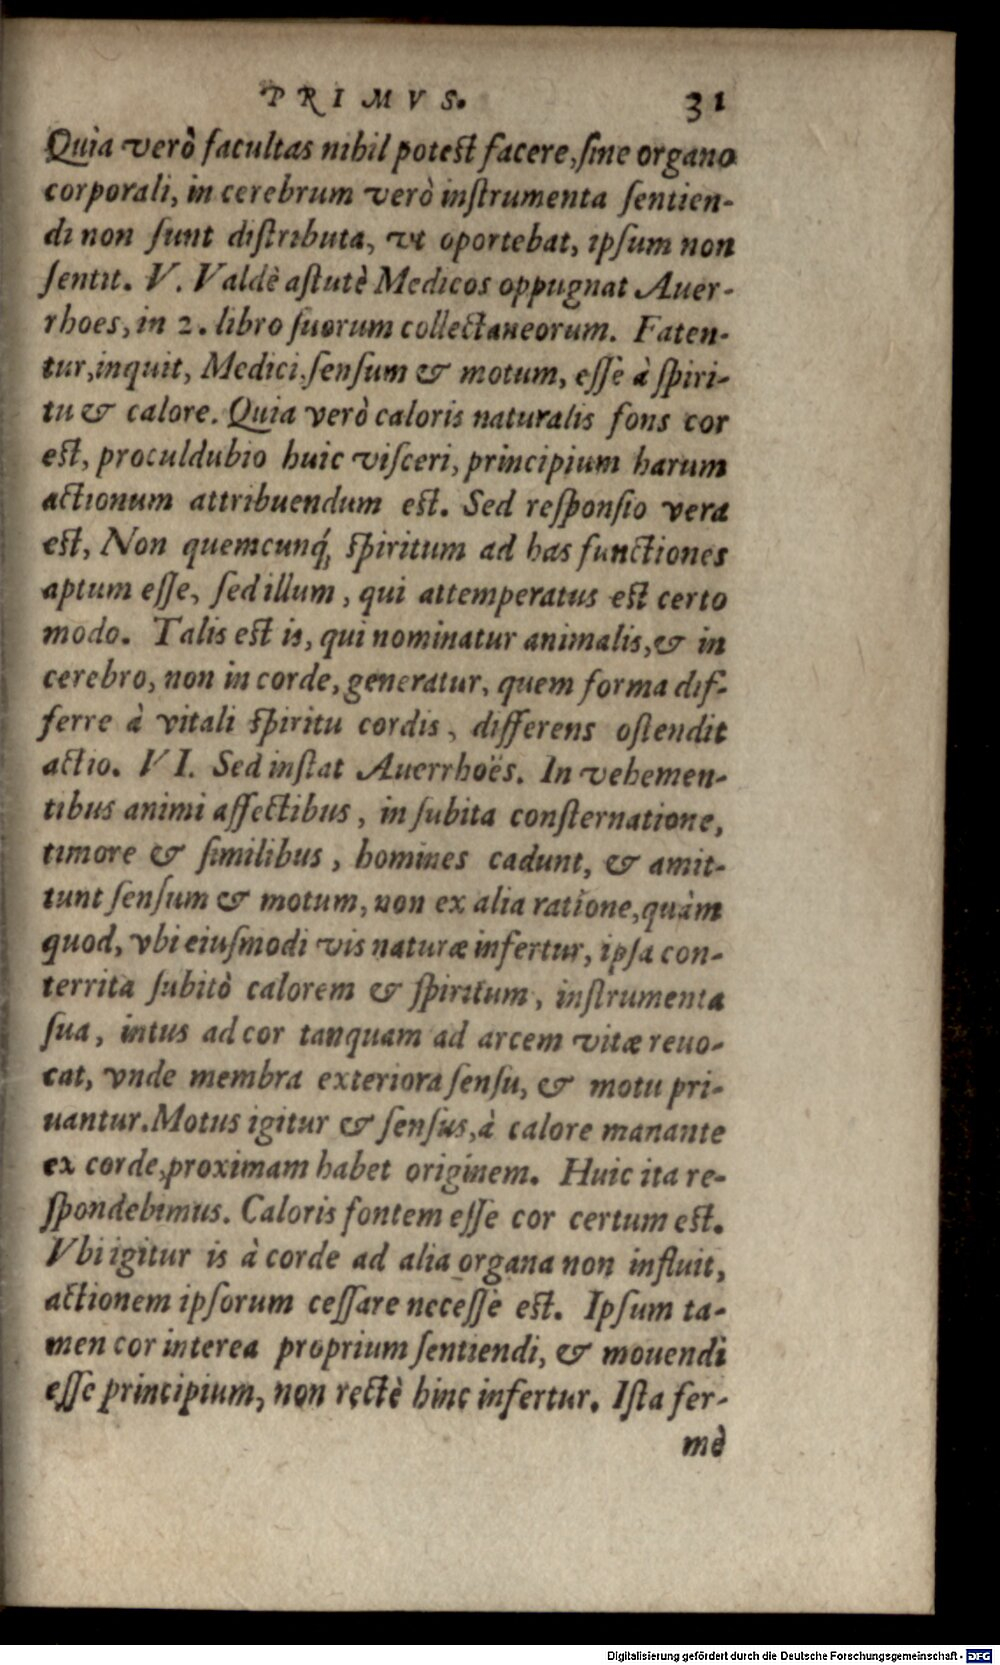 PRIMVS. 31
Quia verò facultas nihil potest facere, sine organo
corporali, in cerebrum verò instrumenta sentien-
di non sunt distributa, vt oportebat, ipsum non
sentit. V. Valdè astutè Medicos oppugnat Auer-
rhoes, in 2. libro suorum collectaneorum. Faten-
tur, inquit, Medici, sensum & motum, esse à spiri-
tu & calore. Quia verò caloris naturalis fons cor
est, proculdubio huic visceri, principium harum
actionum attribuendum est. Sed responsio vera
est, Non quemcunq́; spiritum ad has functiones
aptum esse, sed illum, qui attemperatus est certo
modo. Talis est is, qui nominatur animalis, & in
cerebro, non in corde, generatur, quem forma dif-
ferre à vitali spiritu cordis, differens ostendit
actio. VI. Sed instat Auerrhoës. In vehemen-
tibus animi affectibus, in subita consternatione,
timore & similibus, homines cadunt, & amit-
tunt sensum & motum, non ex alia ratione, quàm
quod, vbi eiusmodi vis naturæ infertur, ipsa con-
territa subitò calorem & spiritum, instrumenta
sua, intus ad cor tanquam ad arcem vitæ reuo-
cat, vnde membra exteriora sensu, & motu pri-
uantur. Motus igitur & sensus, à calore manante
ex corde, proximam habet originem. Huic ita re-
spondebimus. Caloris fontem esse cor certum est.
Vbi igitur is à corde ad alia organa non influit,
actionem ipsorum cessare necesse est. Ipsum ta-
men cor interea proprium sentiendi, & mouendi
esse principium, non rectè hinc infertur. Ista fer-
mè
Digitalisierung gefördert durch die Deutsche Forschungsgemeinschaft - DFG